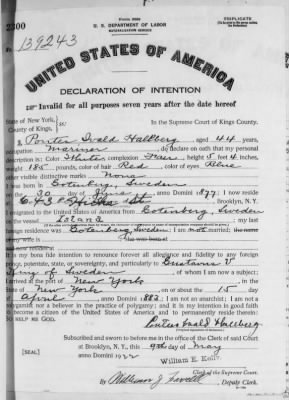 Form 2202
U. S. DEPARTMENT OF LABOR
NATURALIZATION SERVICE
TRIPLICATE
2300
139243
UNITED STATES OF AMERICA
DECLARATION OF INTENTION
Invalid for all purposes seven years after the date hereof
State of New York, County of Kings, ss: In the Supreme Court of Kings County.
I, Pontus Ivald Hallberg, aged 44 years,
occupation Mariner, do declare on oath that my personal
description is: Color White, complexion Fair, height 5 feet 4 inches,
weight 155 pounds, color of hair Red, color of eyes Blue
other visible distinctive marks None
I was born in Gotenberg, Sweden
on the 20 day of June, anno Domini 1877; I now reside
at Hicks St., Brooklyn, N.Y.
I emigrated to the United States of America from Gotenberg, Sweden
on the vessel; my last
foreign residence was Gotenberg, Sweden; I am not married; the name
of my wife is; she was born at
It is my bona fide intention to renounce forever all allegiance and fidelity to any foreign
prince, potentate, state, or sovereignty, and particularly to Gustavus V
King of Sweden, of whom I am now a subject;
I arrived at the port of New York, in the
State of New York, on or about the 15 day
of April, anno Domini 1882; I am not an anarchist; I am not a
polygamist nor a believer in the practice of polygamy; and it is my intention in good faith
to become a citizen of the United States of America and to permanently reside therein:
SO HELP ME GOD.
Pontus Ivald Hallberg
Subscribed and sworn to before me in the office of the Clerk of said Court
at Brooklyn, N.Y., this 9th day of May
anno Domini 1922
[SEAL]
William E. Kelly
Clerk of the Supreme Court.
By, Deputy Clerk.